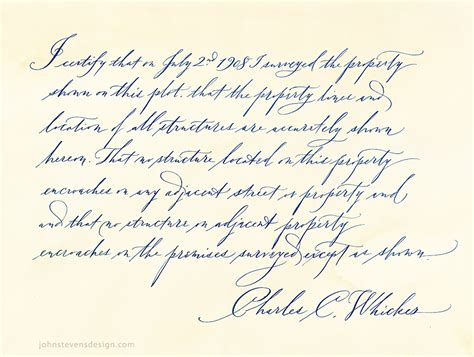 I certify that on July 2nd 1908 I surveyed the property
shown on this plot. that the property lines and
location of all structures are accurately shown
hereon. That no structure located on this property
encroaches on any adjacent street or property and
and that no structure on adjacent property
encroaches on the premises surveyed except as shown.
Charles C. Whickes
johnstevensdesign.com